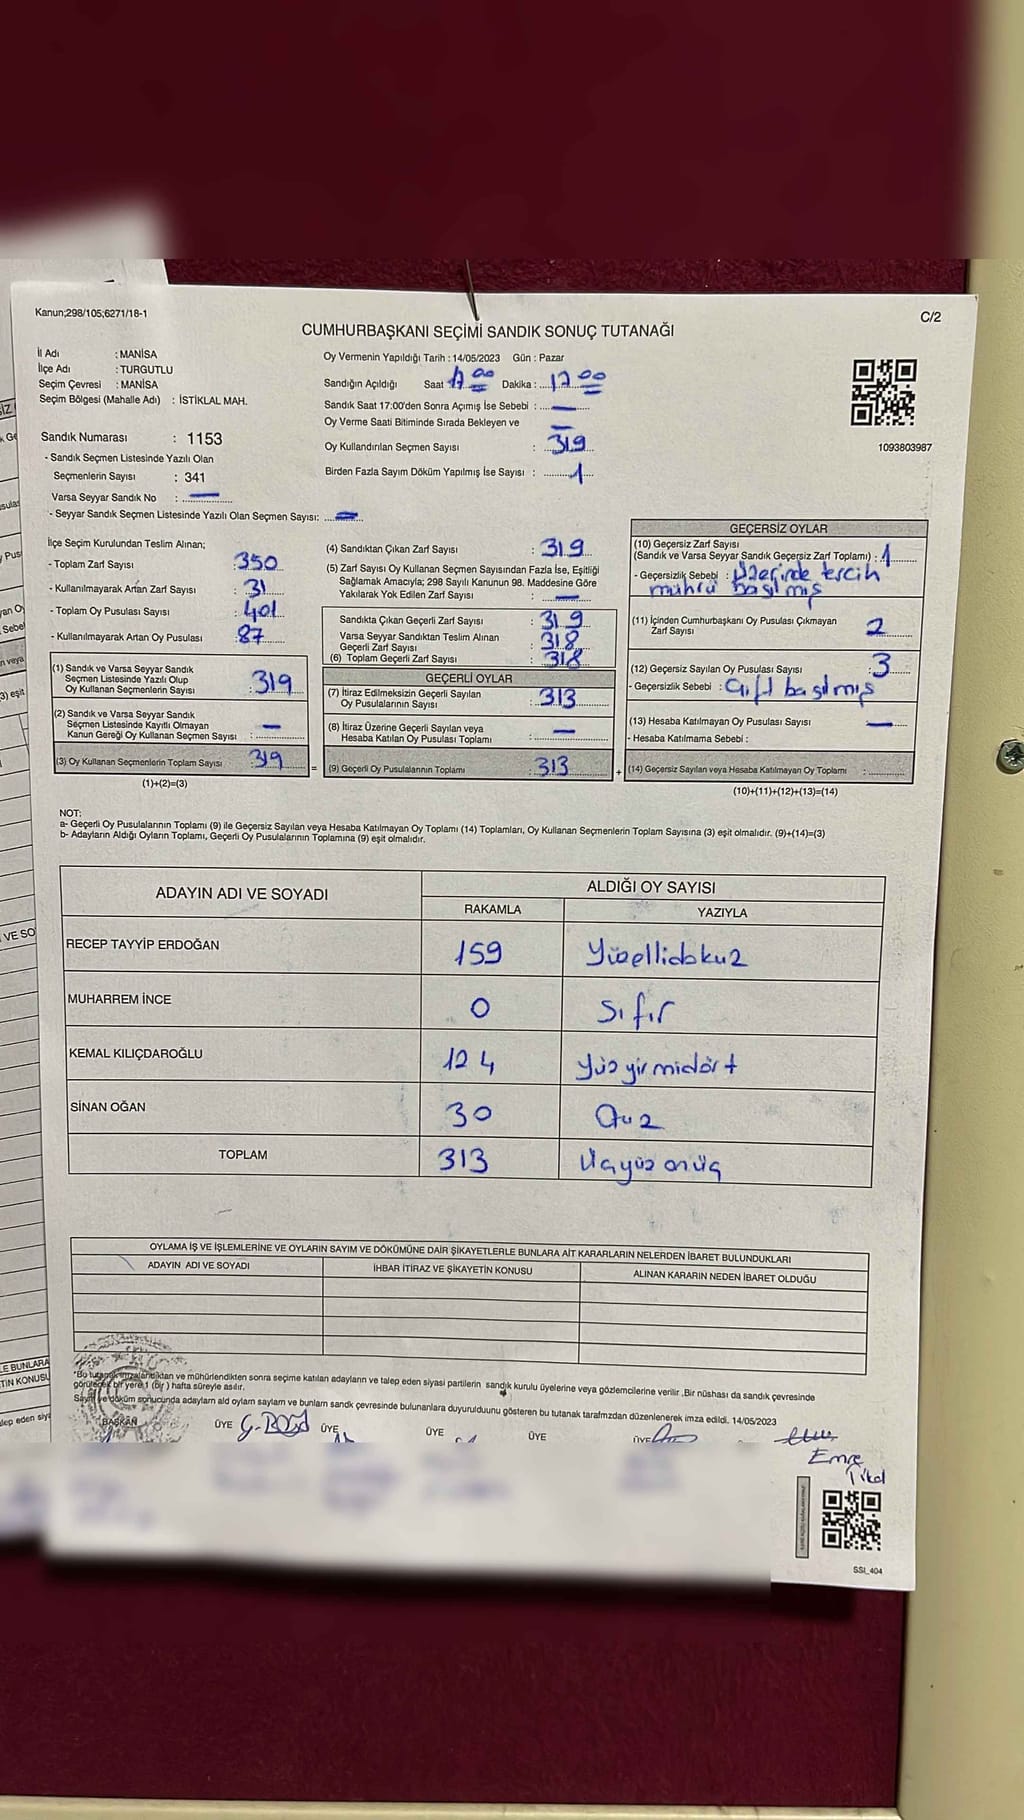 Kanun;298/105;6271/18-1
C/2
CUMHURBAŞKANI SEÇİMİ SANDIK SONUÇ TUTANAĞI
İl Adı : MANİSA
İlçe Adı : TURGUTLU
Seçim Çevresi : MANİSA
Seçim Bölgesi (Mahalle Adı) : İSTİKLAL MAH.
Sandık Numarası : 1153
- Sandık Seçmen Listesinde Yazılı Olan
Seçmenlerin Sayısı : 341
Varsa Seyyar Sandık No : —
- Seyyar Sandık Seçmen Listesinde Yazılı Olan Seçmen Sayısı: —
Oy Vermenin Yapıldığı Tarih : 14/05/2023 Gün : Pazar
Sandığın Açıldığı Saat 17 00 Dakika : 17 00
Sandık Saat 17:00'den Sonra Açımış İse Sebebi : —
Oy Verme Saati Bitiminde Sırada Bekleyen ve —
Oy Kullandırılan Seçmen Sayısı : 319
Birden Fazla Sayım Döküm Yapılmış İse Sayısı : 1
1093803987
İlçe Seçim Kurulundan Teslim Alınan;
- Toplam Zarf Sayısı : 350
- Kullanılmayarak Artan Zarf Sayısı : 31
- Toplam Oy Pusulası Sayısı : 401
- Kullanılmayarak Artan Oy Pusulası : 87
(1) Sandık ve Varsa Seyyar Sandık
Seçmen Listesinde Yazılı Olup
Oy Kullanan Seçmenlerin Sayısı : 319
(2) Sandık ve Varsa Seyyar Sandık
Seçmen Listesinde Kayıtlı Olmayan
Kanun Gereği Oy Kullanan Seçmen Sayısı : —
(3) Oy Kullanan Seçmenlerin Toplam Sayısı : 319
(1)+(2)=(3)
(4) Sandıktan Çıkan Zarf Sayısı : 319
(5) Zarf Sayısı Oy Kullanan Seçmen Sayısından Fazla İse, Eşitliği
Sağlamak Amacıyla; 298 Sayılı Kanunun 98. Maddesine Göre
Yakılarak Yok Edilen Zarf Sayısı : —
Sandıkta Çıkan Geçerli Zarf Sayısı : 319
Varsa Seyyar Sandıktan Teslim Alınan
Geçerli Zarf Sayısı : 318
(6) Toplam Geçerli Zarf Sayısı : 318
GEÇERLİ OYLAR
(7) İtiraz Edilmeksizin Geçerli Sayılan
Oy Pusulalarının Sayısı : 313
(8) İtiraz Üzerine Geçerli Sayılan veya
Hesaba Katılan Oy Pusulası Toplamı : —
= (9) Geçerli Oy Pusulalarının Toplamı : 313
GEÇERSİZ OYLAR
(10) Geçersiz Zarf Sayısı
(Sandık ve Varsa Seyyar Sandık Geçersiz Zarf Toplamı) : 1
- Geçersizlik Sebebi : Üzerinde tercih
mührü basılmış
(11) İçinden Cumhurbaşkanı Oy Pusulası Çıkmayan
Zarf Sayısı 2
(12) Geçersiz Sayılan Oy Pusulası Sayısı : 3
- Geçersizlik Sebebi : Çift basılmış
(13) Hesaba Katılmayan Oy Pusulası Sayısı : —
- Hesaba Katılmama Sebebi :
+ (14) Geçersiz Sayılan veya Hesaba Katılmayan Oy Toplamı :
(10)+(11)+(12)+(13)=(14)
NOT:
a- Geçerli Oy Pusulalarının Toplamı (9) ile Geçersiz Sayılan veya Hesaba Katılmayan Oy Toplamı (14) Toplamları, Oy Kullanan Seçmenlerin Toplam Sayısına (3) eşit olmalıdır. (9)+(14)=(3)
b- Adayların Aldığı Oyların Toplamı, Geçerli Oy Pusulalarının Toplamına (9) eşit olmalıdır.
ADAYIN ADI VE SOYADI
ALDIĞI OY SAYISI
RAKAMLA YAZIYLA
RECEP TAYYİP ERDOĞAN 159 Yüzellidokuz
MUHARREM İNCE 0 Sıfır
KEMAL KILIÇDAROĞLU 124 Yüzyirmidört
SİNAN OĞAN 30 Otuz
TOPLAM 313 Üçyüzonüç
OYLAMA İŞ VE İŞLEMLERİNE VE OYLARIN SAYIM VE DÖKÜMÜNE DAİR ŞİKAYETLERLE BUNLARA AİT KARARLARIN NELERDEN İBARET BULUNDUKLARI
ADAYIN ADI VE SOYADI
İHBAR İTİRAZ VE ŞİKAYETİN KONUSU
ALINAN KARARIN NEDEN İBARET OLDUĞU
*Bu tutanak imzalandıktan ve mühürlendikten sonra seçime katılan adayların ve talep eden siyasi partilerin sandık kurulu üyelerine veya gözlemcilerine verilir ,Bir nüshası da sandık çevresinde
görülecek bir yere 1 (bir ) hafta süreyle asılır.
Sayım ve döküm sonucunda adayların ald oylam saylam ve bunlam sandk çevresinde bulunanlara duyurulduunu gösteren bu tutanak tarafmzdan düzenlenerek imza edildi. 14/05/2023
BAŞKAN ÜYE ÜYE ÜYE ÜYE ÜYE
Emre
SSI_404